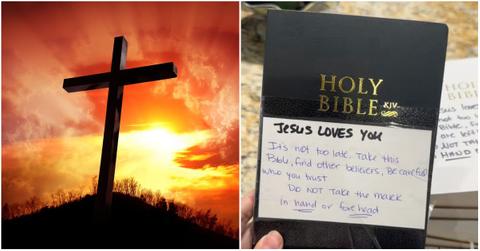 HOLY
BIBLE KJV
JESUS LOVES YOU
It's not too late. Take this
Bible, find other believers, Be careful
who you trust
Do NOT Take the mark
in hand or forehead
HOLY
BIB
sus loves
not too
Bible, f
NOT TA
HAND